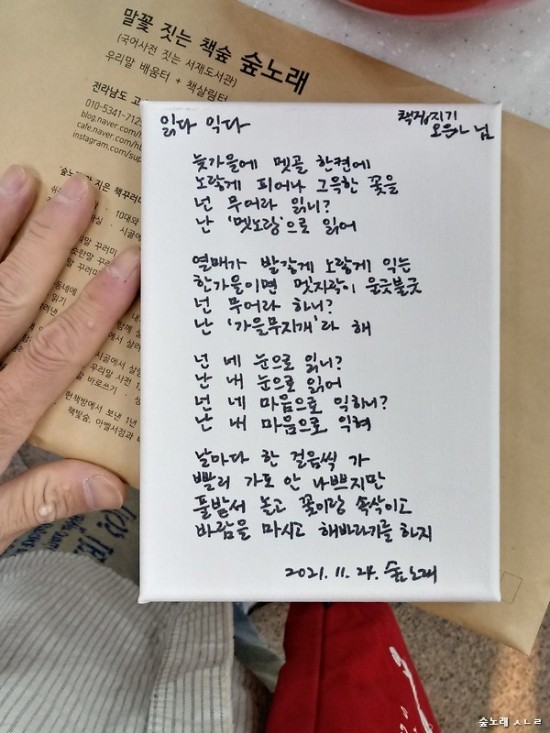 말꽃 짓는 책숲 숲노래
(국어사전 짓는 서재도서관)
우리말 배움터 + 책살림터
전라남도 고
010-5341-712
blog.naver.com/h
cafe.naver.com/h
instagram.com/su
읽다 익다
책집지기
오은아 님
늦가을에 멧골 한켠에
노랗게 피어나 그윽한 꽃을
넌 무어라 읽니?
난 '멧노랑'으로 읽어
열매가 발갛게 노랗게 익는
한가을이면 멧자락이 울긋불긋
넌 무어라 하니?
난 '가을무지개'라 해
넌 네 눈으로 읽니?
난 내 눈으로 읽어
넌 네 마음으로 익히니?
난 내 마음으로 익혀
날마다 한 걸음씩 가
빨리 가도 안 나쁘지만
풀밭서 놀고 꽃이랑 속삭이고
바람을 마시고 해바라기를 하지
2021. 11. 24. 숲노래
숲노래 ㅅㄴㄹ